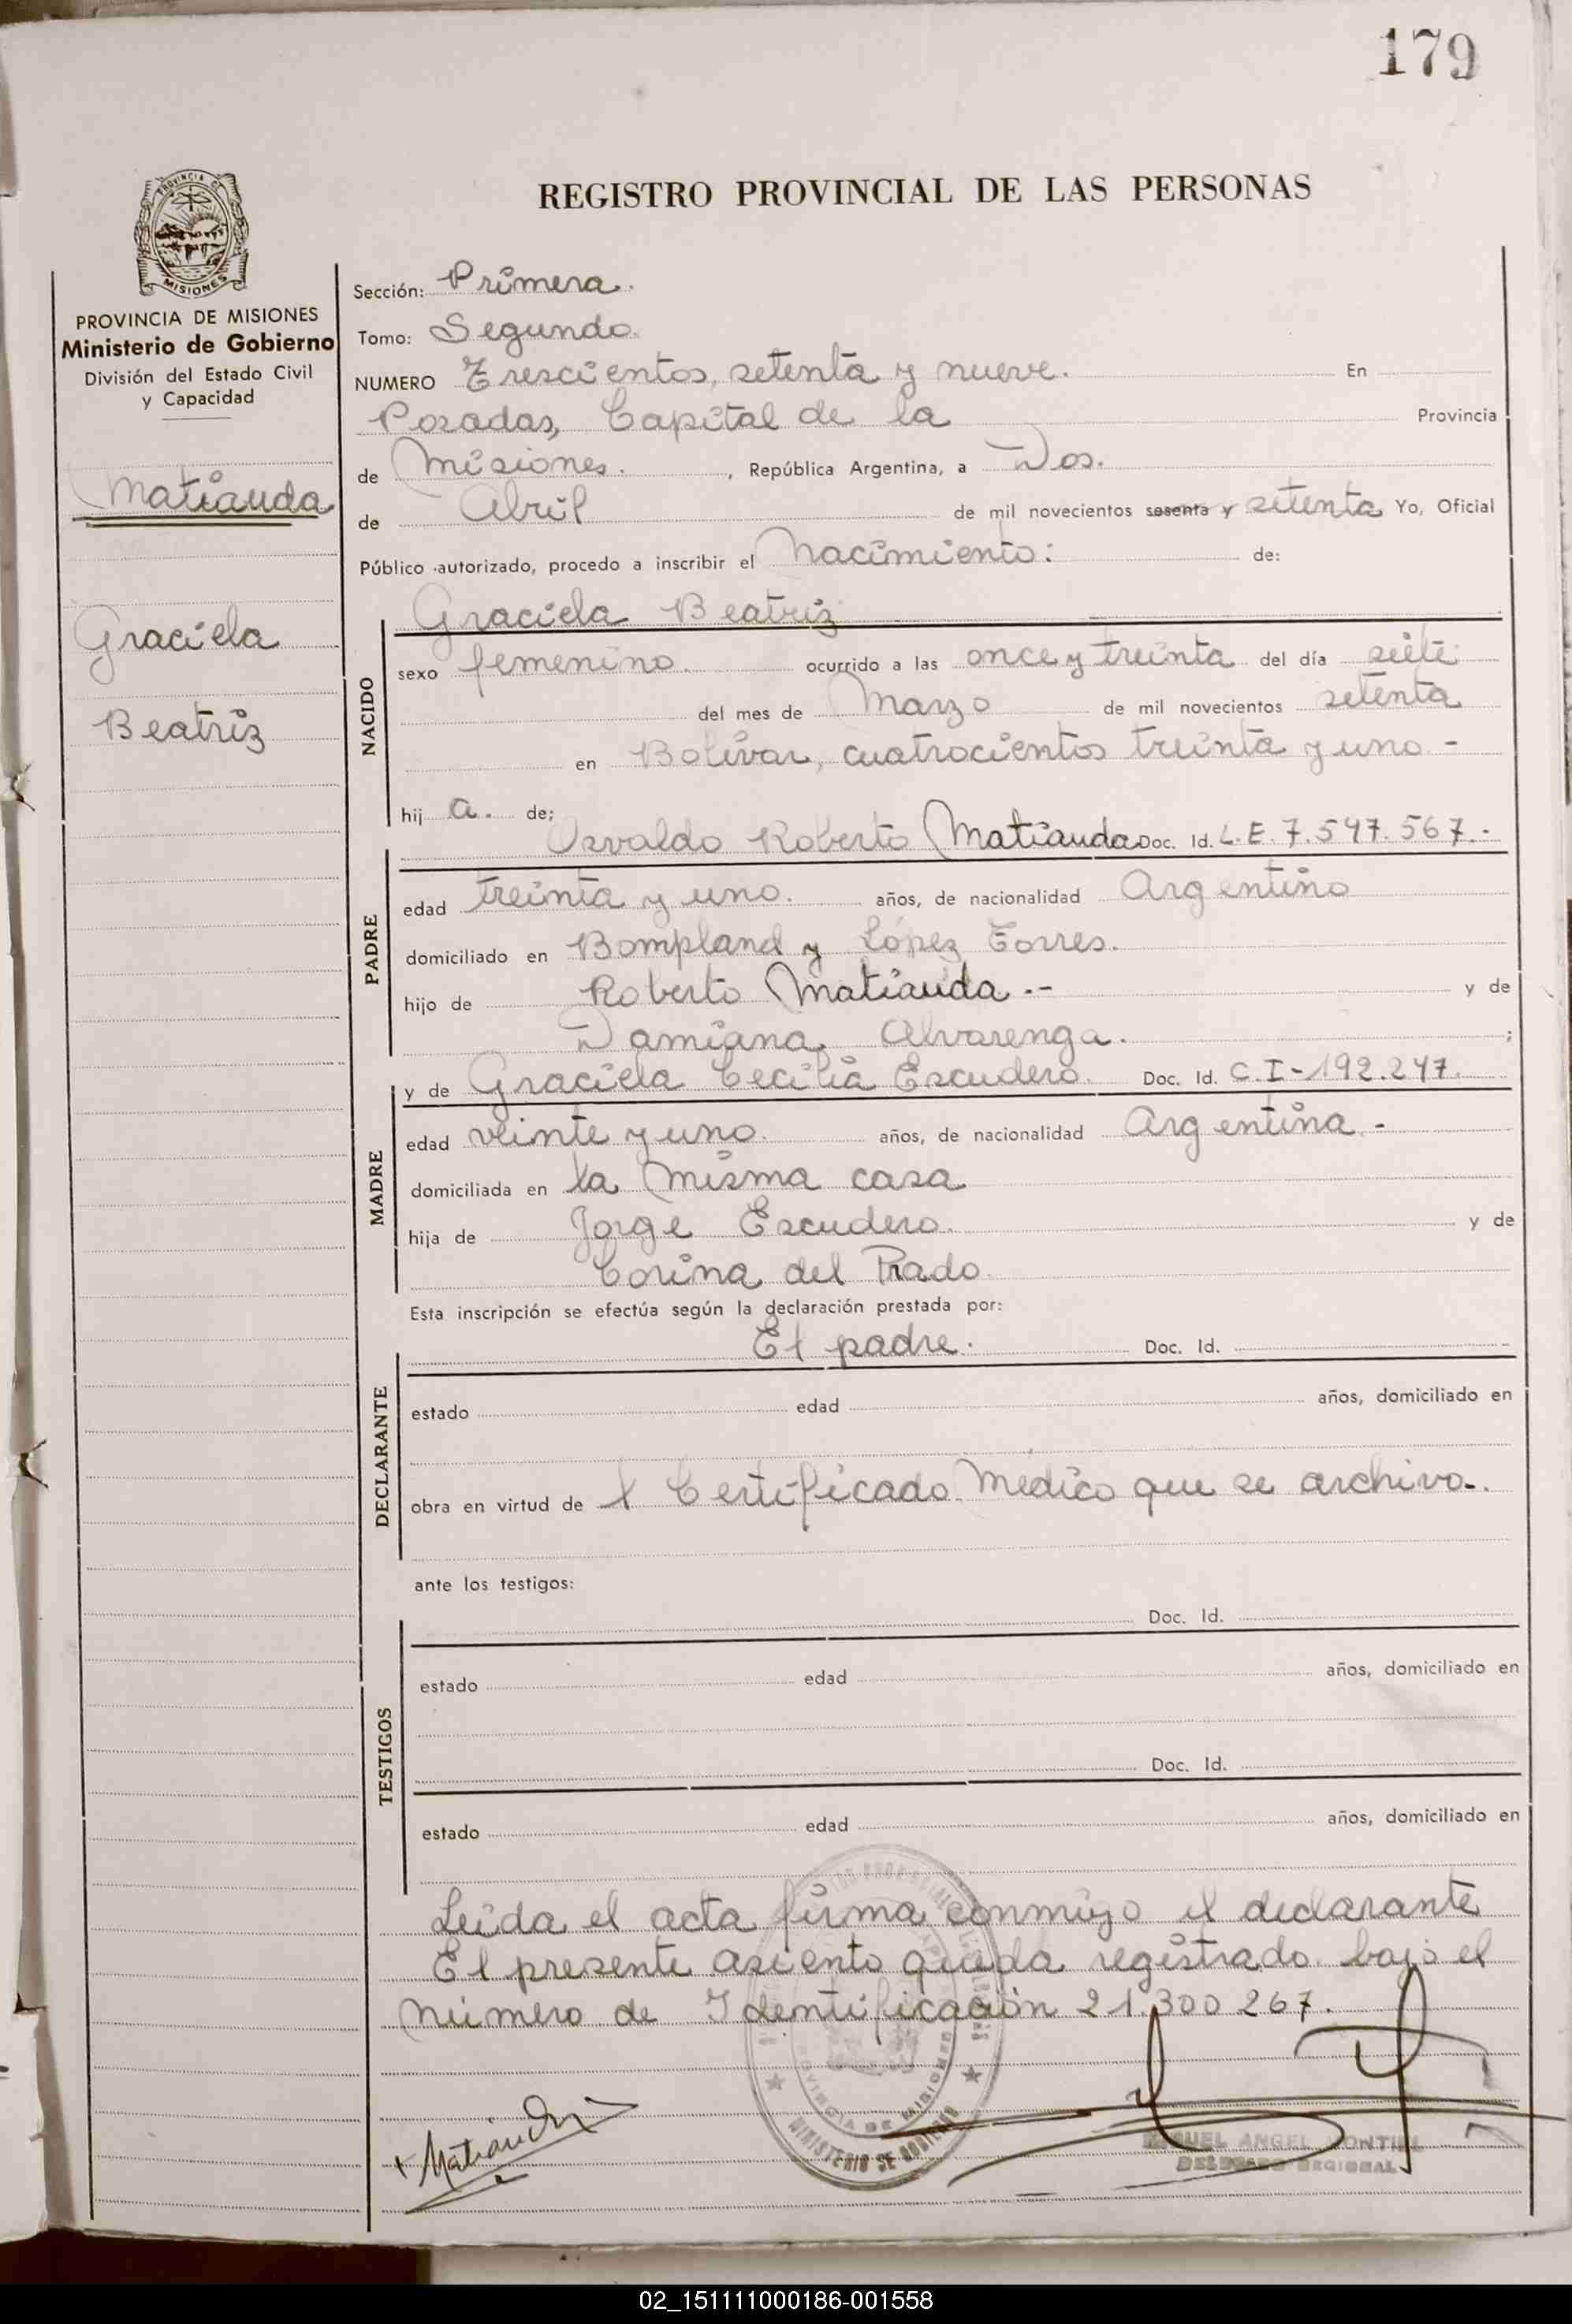 179
PROVINCIA DE
MISIONES
REGISTRO PROVINCIAL DE LAS PERSONAS
PROVINCIA DE MISIONES
Ministerio de Gobierno
División del Estado Civil
y Capacidad
Matiauda
Graciela
Beatriz
Sección: Primera.
Tomo: Segundo.
NUMERO Trescientos, setenta y nueve. En
Posadas, Capital de la Provincia
de Misiones. , República Argentina, a Dos.
de Abril de mil novecientos sesenta y setenta Yo, Oficial
Público autorizado, procedo a inscribir el Nacimiento: de:
Graciela Beatriz
NACIDO
sexo femenino. ocurrido a las once y treinta del día siete
del mes de Marzo de mil novecientos setenta
en Bolívar, cuatrocientos treinta y uno -
hij a. de;
Osvaldo Roberto Matiauda Doc. Id. L.E. 7.547.567.-
PADRE
edad treinta y uno. años, de nacionalidad Argentino
domiciliado en Bompland y López Torres.
hijo de Roberto Matiauda .-- y de
Damiana Alvarenga. ;
y de Graciela Cecilia Escudero. Doc. Id. C.I-192.247.
MADRE
edad veinte y uno. años, de nacionalidad Argentina.-
domiciliada en la misma casa
hija de Jorge Escudero. y de
Corina del Prado.
Esta inscripción se efectúa según la declaración prestada por:
El padre. Doc. Id.
DECLARANTE
estado edad años, domiciliado en
obra en virtud de 1 Certificado Médico que se archiva.
ante los testigos:
Doc. Id.
TESTIGOS
estado edad años, domiciliado en
Doc. Id.
estado edad años, domiciliado en
Leída el acta firma conmigo el declarante
El presente asiento queda registrado bajo el
Número de Identificación 21.300 267.
PROVINCIA DE MISIONES
MINISTERIO DE GOBIERNO
Matiauda
MIGUEL ANGEL MONTIEL
DELEGADO REGIONAL
02_151111000186-001558